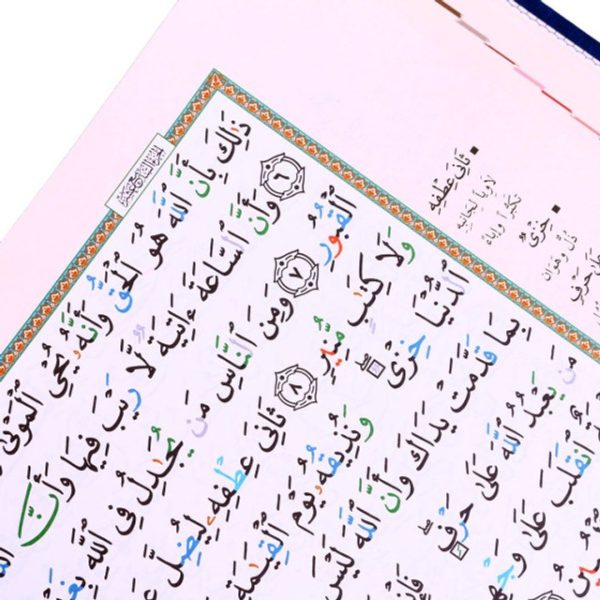 ثَانِيَ عِطْفِهِ
لاوياً لجانبه
تكبّراً وإباءً
خِزْيٌ
ذُلّ وهوان
ذَٰلِكَ بِأَنَّ ٱللَّهَ هُوَ ٱلْحَقُّ وَأَنَّهُۥ يُحْيِ ٱلْمَوْتَىٰ
٦ وَأَنَّ ٱلسَّاعَةَ ءَاتِيَةٌ لَّا رَيْبَ فِيهَا وَأَنَّ
ٱلْقُبُورِ ٧ وَمِنَ ٱلنَّاسِ مَن يُجَٰدِلُ فِى ٱللَّهِ بِغَيْرِ
وَلَا كِتَٰبٍ مُّنِيرٍ ٨ ثَانِىَ عِطْفِهِۦ لِيُضِلَّ
ٱلدُّنْيَا خِزْىٌ وَنُذِيقُهُۥ يَوْمَ ٱلْقِيَٰمَةِ
بِمَا قَدَّمَتْ يَدَاكَ وَأَنَّ ٱللَّهَ لَيْسَ
مَن يَعْبُدُ ٱللَّهَ عَلَىٰ حَرْفٍ فَإِنْ
ٱنقَلَبَ عَلَىٰ وَجْهِهِۦ